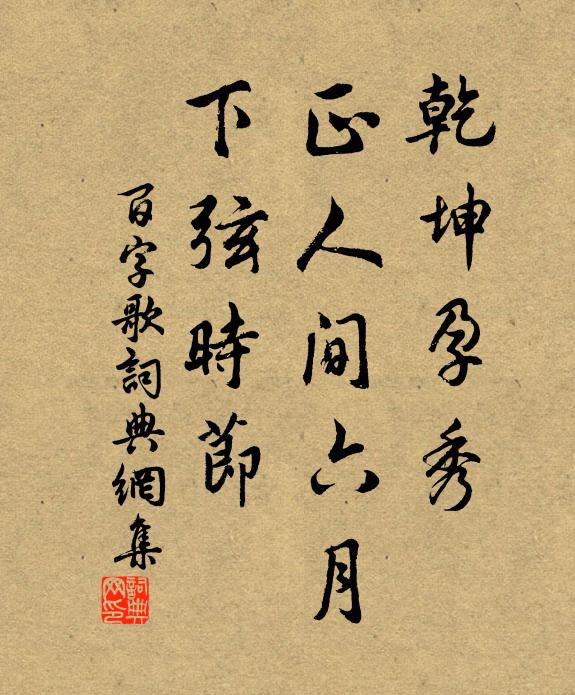 乾坤孕秀
正人间六月
下弦時節
百字歌詞典網集
詞典网印